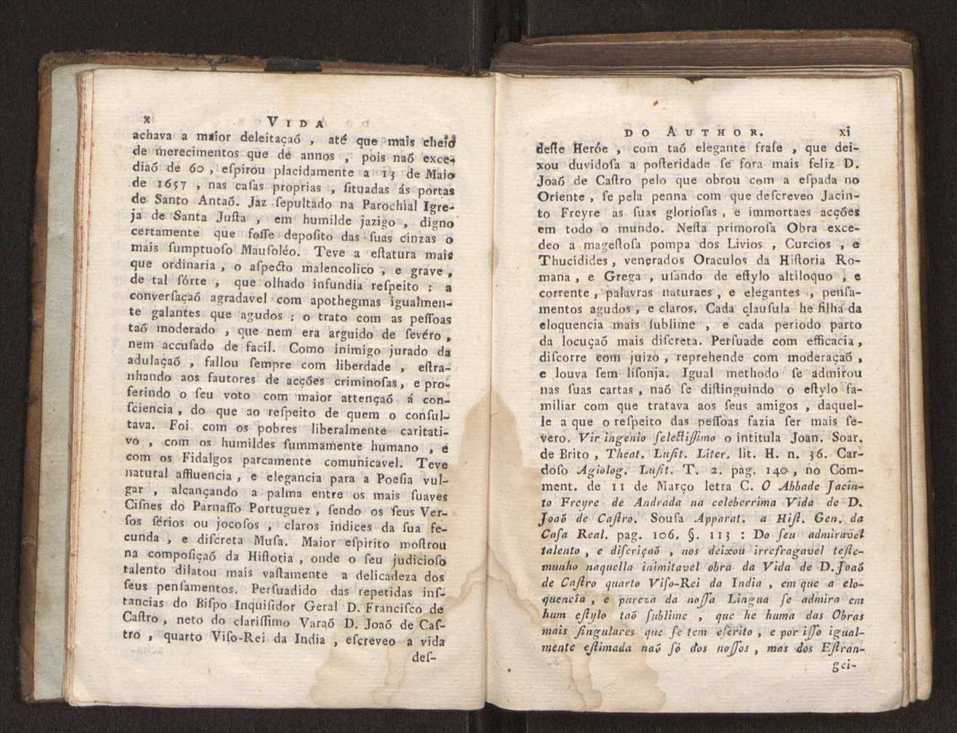 x VIDA
achava a maior deleitaçaõ , até que mais cheio
de merecimentos que de annos , pois naõ exce-
diaõ de 60 , eſpirou placidamente a 13 de Maio
de 1657 , nas caſas proprias , ſituadas ás portas
de Santo Antaõ. Jaz ſepultado na Parochial Igre-
ja de Santa Juſta , em humilde jazigo , digno
certamente que foſſe depoſito das ſuas cinzas o
mais ſumptuoſo Mauſoléo. Teve a eſtatura mais
que ordinaria , o aſpecto malencolico , e grave ,
de tal ſórte , que olhado infundia reſpeito : a
converſaçaõ agradavel com apothegmas igualmen-
te galantes que agudos : o trato com as peſſoas
taõ moderado , que nem era arguido de ſevéro ,
nem accuſado de facil. Como inimigo jurado da
adulaçaõ , fallou ſempre com liberdade , eſtra-
nhando aos fautores de acções criminoſas , e pro-
ferindo o ſeu voto com maior attençaõ á con-
ſciencia , do que ao reſpeito de quem o conſul-
tava. Foi com os pobres liberalmente caritati-
vo , com os humildes ſummamente humano , e
com os Fidalgos parcamente comunicavel. Teve
natural affluencia , e elegancia para a Poeſia vul-
gar , alcançando a palma entre os mais ſuaves
Ciſnes do Parnaſſo Portuguez , ſendo os ſeus Ver-
ſos ſérios ou jocoſos , claros indices da ſua fe-
cunda , e diſcreta Muſa. Maior eſpirito moſtrou
na compoſiçaõ da Hiſtoria , onde o ſeu judicioſo
talento dilatou mais vaſtamente a delicadeza dos
ſeus penſamentos. Perſuadido das repetidas inſ-
tancias do Biſpo Inquiſidor Geral D. Franciſco de
Caſtro , neto do clariſſimo Varaõ D. Joaõ de Caſ-
tro , quarto Viſo-Rei da India , eſcreveo a vida
deſ-
DO AUTHOR. xi
deſte Heróe , com taõ elegante fraſe , que dei-
xou duvidoſa a poſteridade ſe fora mais feliz D.
Joaõ de Caſtro pelo que obrou com a eſpada no
Oriente , ſe pela penna com que deſcreveo Jacin-
to Freyre as ſuas glorioſas , e immortaes acções
em todo o mundo. Neſta primoroſa Obra exce-
deo a mageſtoſa pompa dos Livios , Curcios , e
Thucidides , venerados Oraculos da Hiſtoria Ro-
mana , e Grega , uſando de eſtylo altiloquo , e
corrente , palavras naturaes , e elegantes , penſa-
mentos agudos , e claros. Cada clauſula he filha da
eloquencia mais ſublime , e cada periodo parto
da locuçaõ mais diſcreta. Perſuade com efficacia ,
diſcorre com juizo , reprehende com moderaçaõ ,
e louva ſem liſonja. Igual methodo ſe admirou
nas ſuas cartas , naõ ſe diſtinguindo o eſtylo fa-
miliar com que tratava aos ſeus amigos , daquel-
le a que o reſpeito das peſſoas fazia ſer mais ſe-
vero. Vir ingenio ſelectiſſimo o intitula Joan. Soar.
de Brito , Theat. Luſit. Liter. lit. H. n. 36. Car-
doſo Agiolog. Luſit. T. 2. pag. 140 , no Com-
ment. de 11 de Março letra C. O Abbade Jacin-
to Freyre de Andrada na celeberrima Vida de D.
Joaõ de Caſtro. Souſa Apparat. a Hiſt. Gen. da
Caſa Real. pag. 106. §. 113 : Do ſeu admiravel
talento , e diſcriçaõ , nos deixou irrefragavel teſte-
munho naquella inimitavel obra da Vida de D. Joaõ
de Caſtro quarto Viſo-Rei da India , em que a elo-
quencia , e pureza da noſſa Lingua ſe admira em
hum eſtylo taõ ſublime , que he huma das Obras
mais ſingulares que ſe tem eſcrito , e por iſſo igual-
mente eſtimada naõ ſó dos noſſos , mas dos Eſtran-
gei-